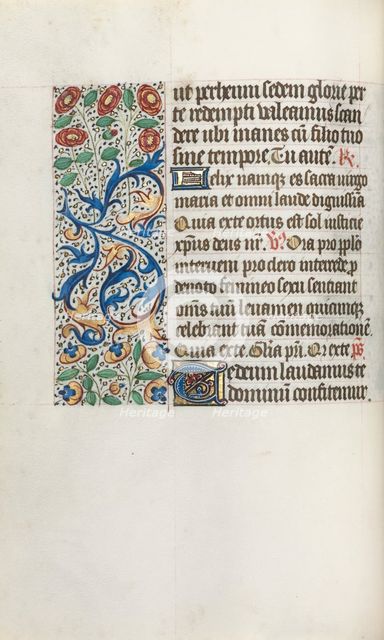 ut per heum sedem glorie per
te redempti valeamus scan
dere ubi manes cu filio tuo
sine tempore Tu aute. R.
Felix namque es sacra virgo
maria et omni laude dignissia
Quia ex te ortus est sol iusticie
xpus deus nr. V. Ora pro pplo
interveni pro clero intercede p
devoto femineo sexu sentiant
oms tuu levamen quicumque
celebrant tua comemoratione.
Quia ex te. Glia pri. Q ex te ps
Te deum laudamus te
dominum confitemur.
Heritage
Heritage
Heritage
Heritage